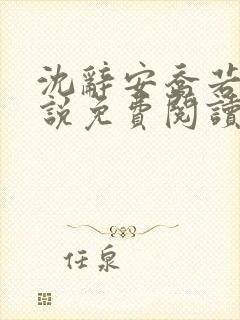 沈辭安喬若
說免費閱讀
任泉